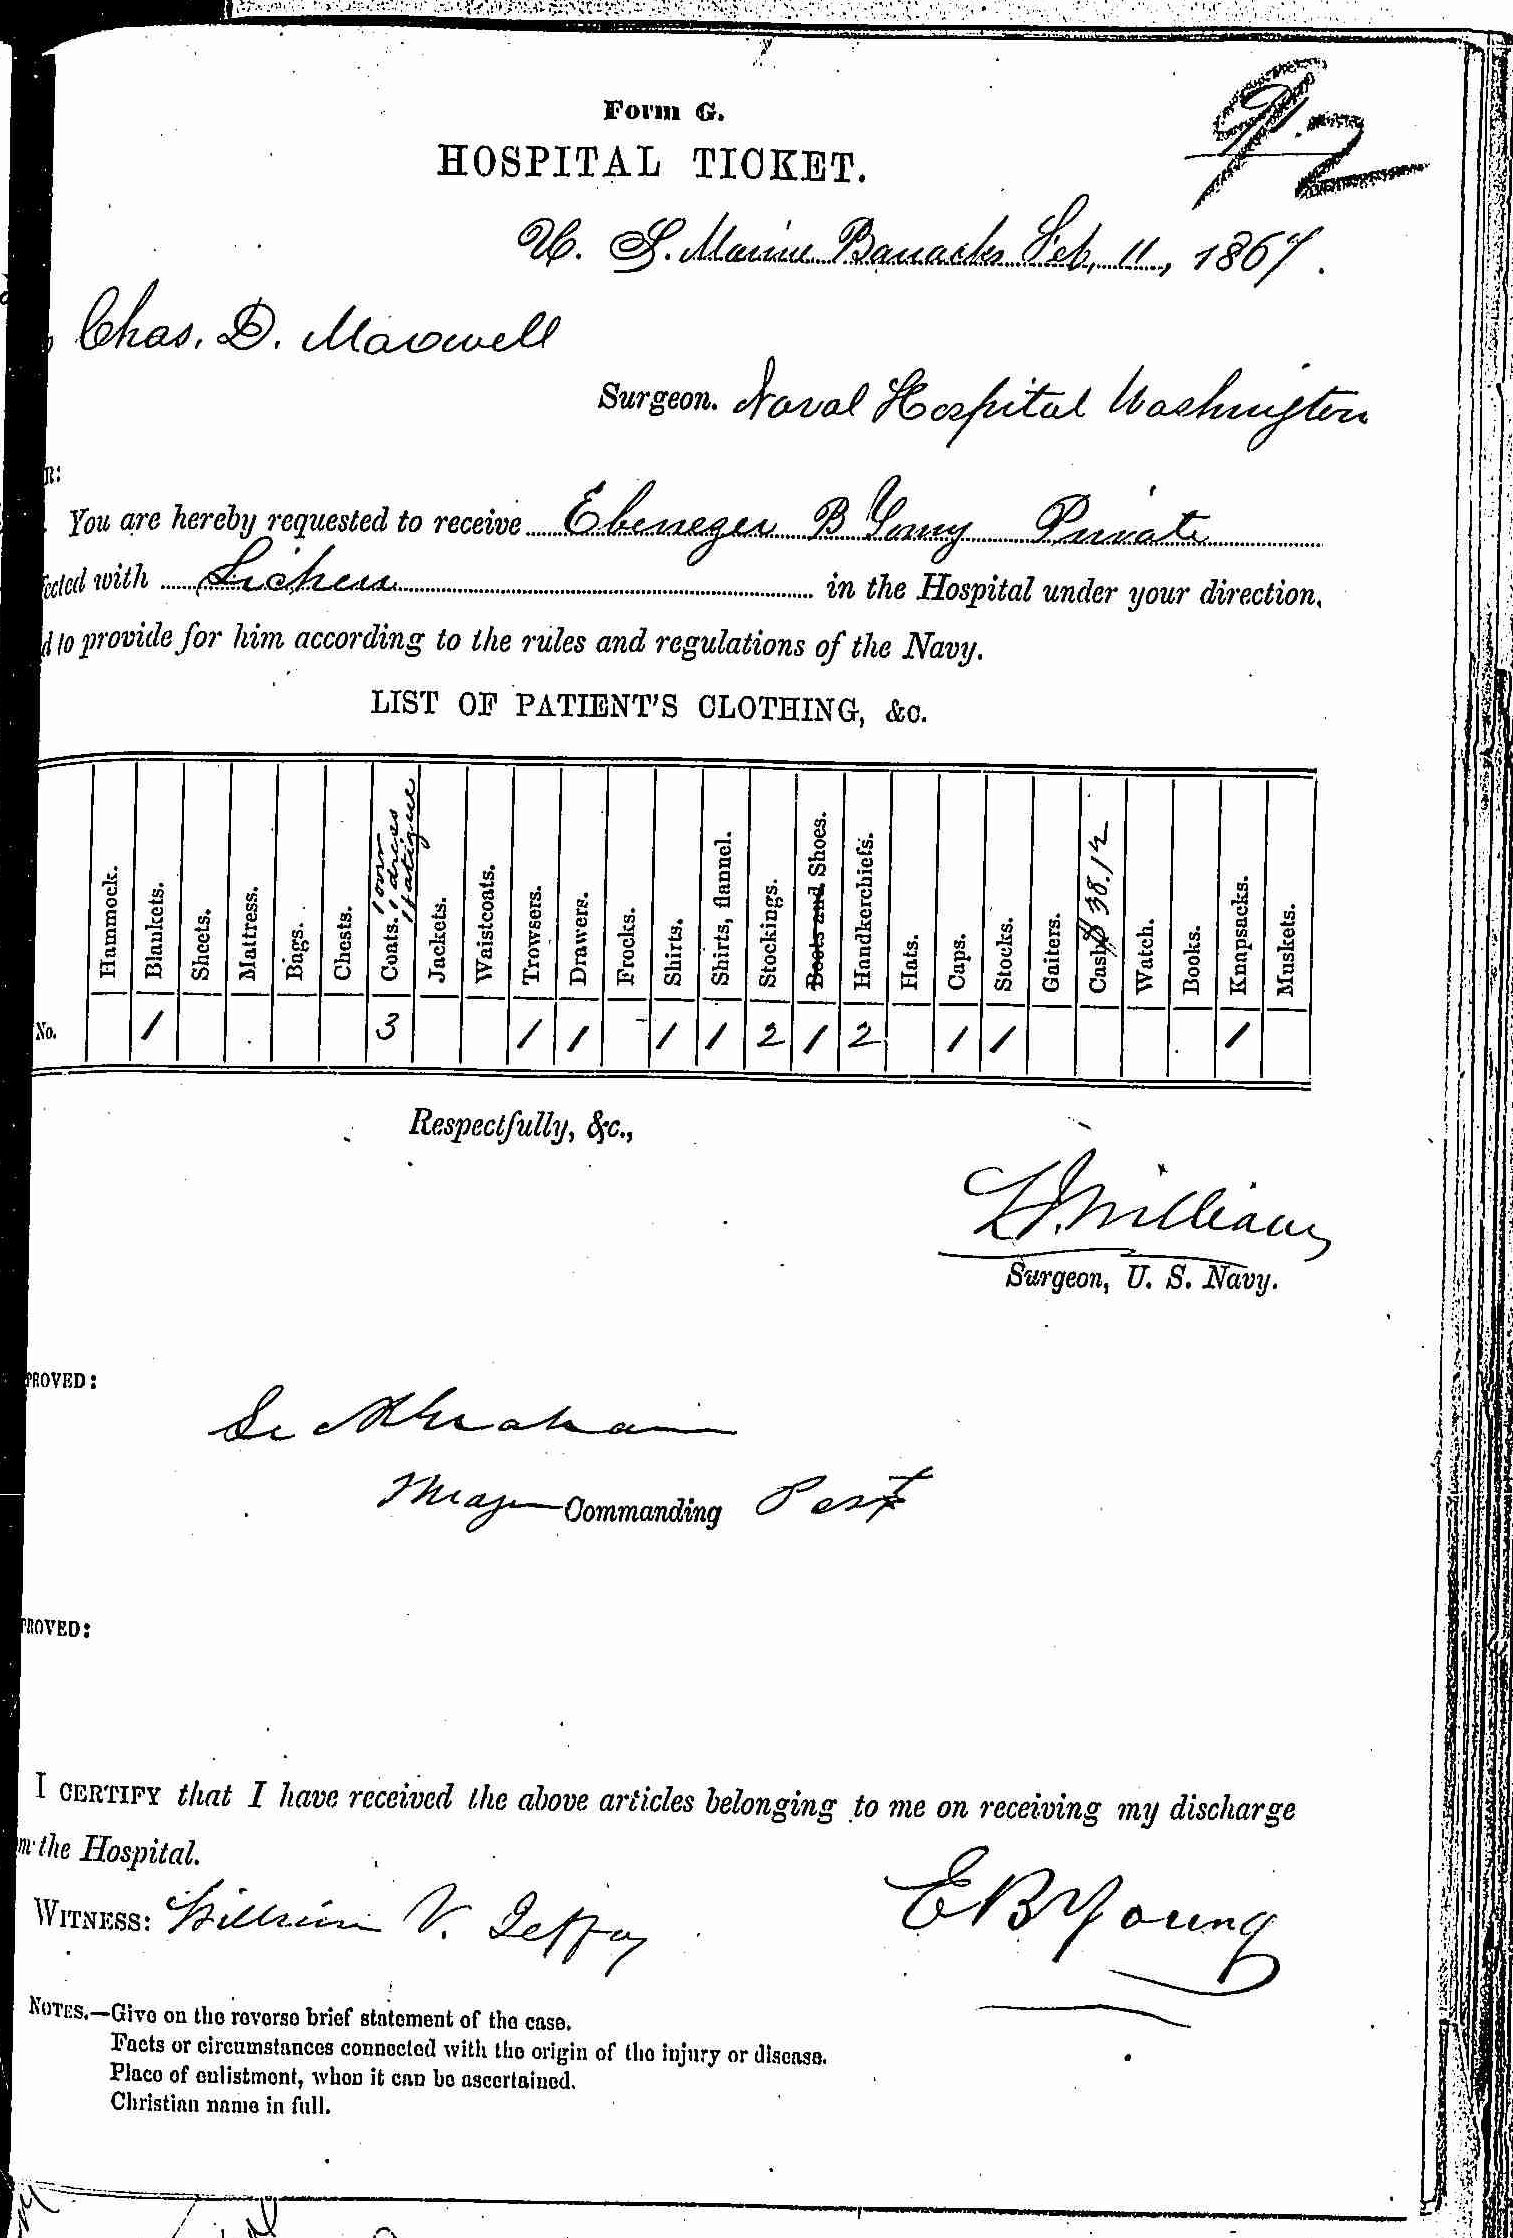 92
Form G.
HOSPITAL TICKET.
U. S. Marine Barracks Feb, 11, 1867.
Chas. D. Maxwell
Surgeon. Naval Hospital Washington
R:
You are hereby requested to receive Ebenezer B Young Private
ected with Lichen in the Hospital under your direction,
d to provide for him according to the rules and regulations of the Navy.
LIST OF PATIENT'S CLOTHING, &c.
Hammock. Blankets. Sheets. Mattress. Bags. Chests. Coats. 1 over 1 dress 1 fatigue Jackets. Waistcoats. Trowsers. Drawers. Frocks. Shirts. Shirts, flannel. Stockings. Boots and Shoes. Handkerchiefs. Hats. Caps. Stocks. Gaiters. Cash, $38.12 Watch. Books. Knapsacks. Muskets.
No. 1 3 1 1 1 1 2 1 2 1 1 1
Respectfully, &c.,
Surgeon, U. S. Navy.
PROVED:
Graham
Major Commanding Post
PROVED:
I CERTIFY that I have received the above articles belonging to me on receiving my discharge
m the Hospital.
WITNESS: William V. E B Young
NOTES.—Give on the reverse brief statement of the case.
Facts or circumstances connected with the origin of the injury or disease.
Place of enlistment, when it can be ascertained.
Christian name in full.